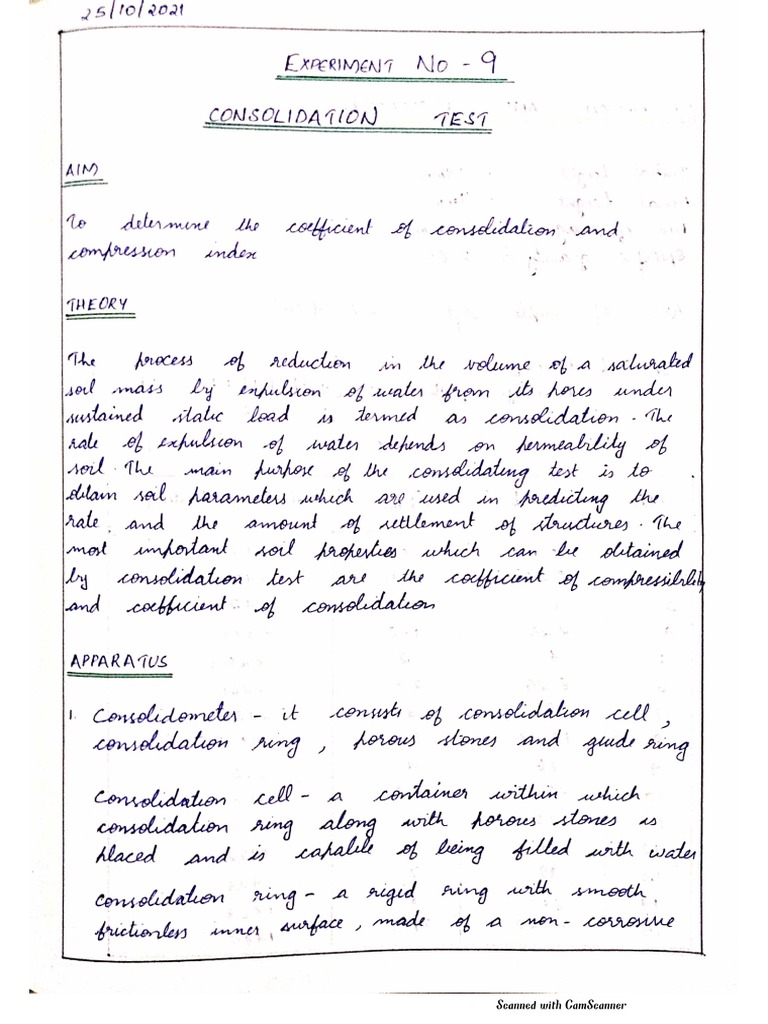 25/10/2021
EXPERIMENT NO - 9
CONSOLIDATION TEST
AIM
To determine the coefficient of consolidation and
compression index
THEORY
The process of reduction in the volume of a saturated
soil mass by expulsion of water from its pores under
sustained static load is termed as consolidation. The
rate of expulsion of water depends on permeability of
soil. The main purpose of the consolidating test is to
obtain soil parameters which are used in predicting the
rate and the amount of settlement of structures. The
most important soil properties which can be obtained
by consolidation test are the coefficient of compressibility
and coefficient of consolidation
APPARATUS
1. Consolidometer - it consists of consolidation cell,
consolidation ring, porous stones and guide ring
Consolidation cell - a container within which
consolidation ring along with porous stones is
placed and is capable of being filled with water
Consolidation ring - a rigid ring with smooth
frictionless inner surface, made of a non-corrosive
Scanned with CamScanner